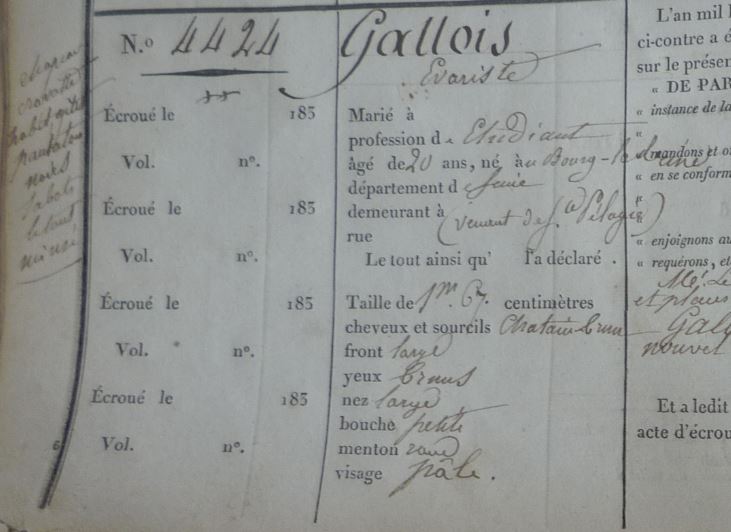 chapeau
cravatte
habit gilet
pantalon
noirs
sabots
le tout
mi usé
N.º 4424
Écroué le 183
Vol. nº.
Écroué le 183
Vol. nº.
Écroué le 183
Vol. nº.
Écroué le 183
Vol. nº.
6
Gallois
Evariste
Marié à
profession de Etudiant
âgé de 20 ans, né au Bourg-la-Reine
département de Seine
demeurant à (venant de Ste Pélagie)
rue
Le tout ainsi qu' l'a déclaré.
Taille de 1m. 67. centimètres
cheveux et sourcils Chatain brun
front large
yeux bruns
nez large
bouche petite
menton rond
visage pâle.
L'an mil
ci-contre a é
sur le présen
« DE PAR
« instance de la
«
« mandons et or
« en se conform
«
«
« enjoignons au
« requérons, et
et plaus
Gal
nouvel
Et a ledit
acte d'écrou